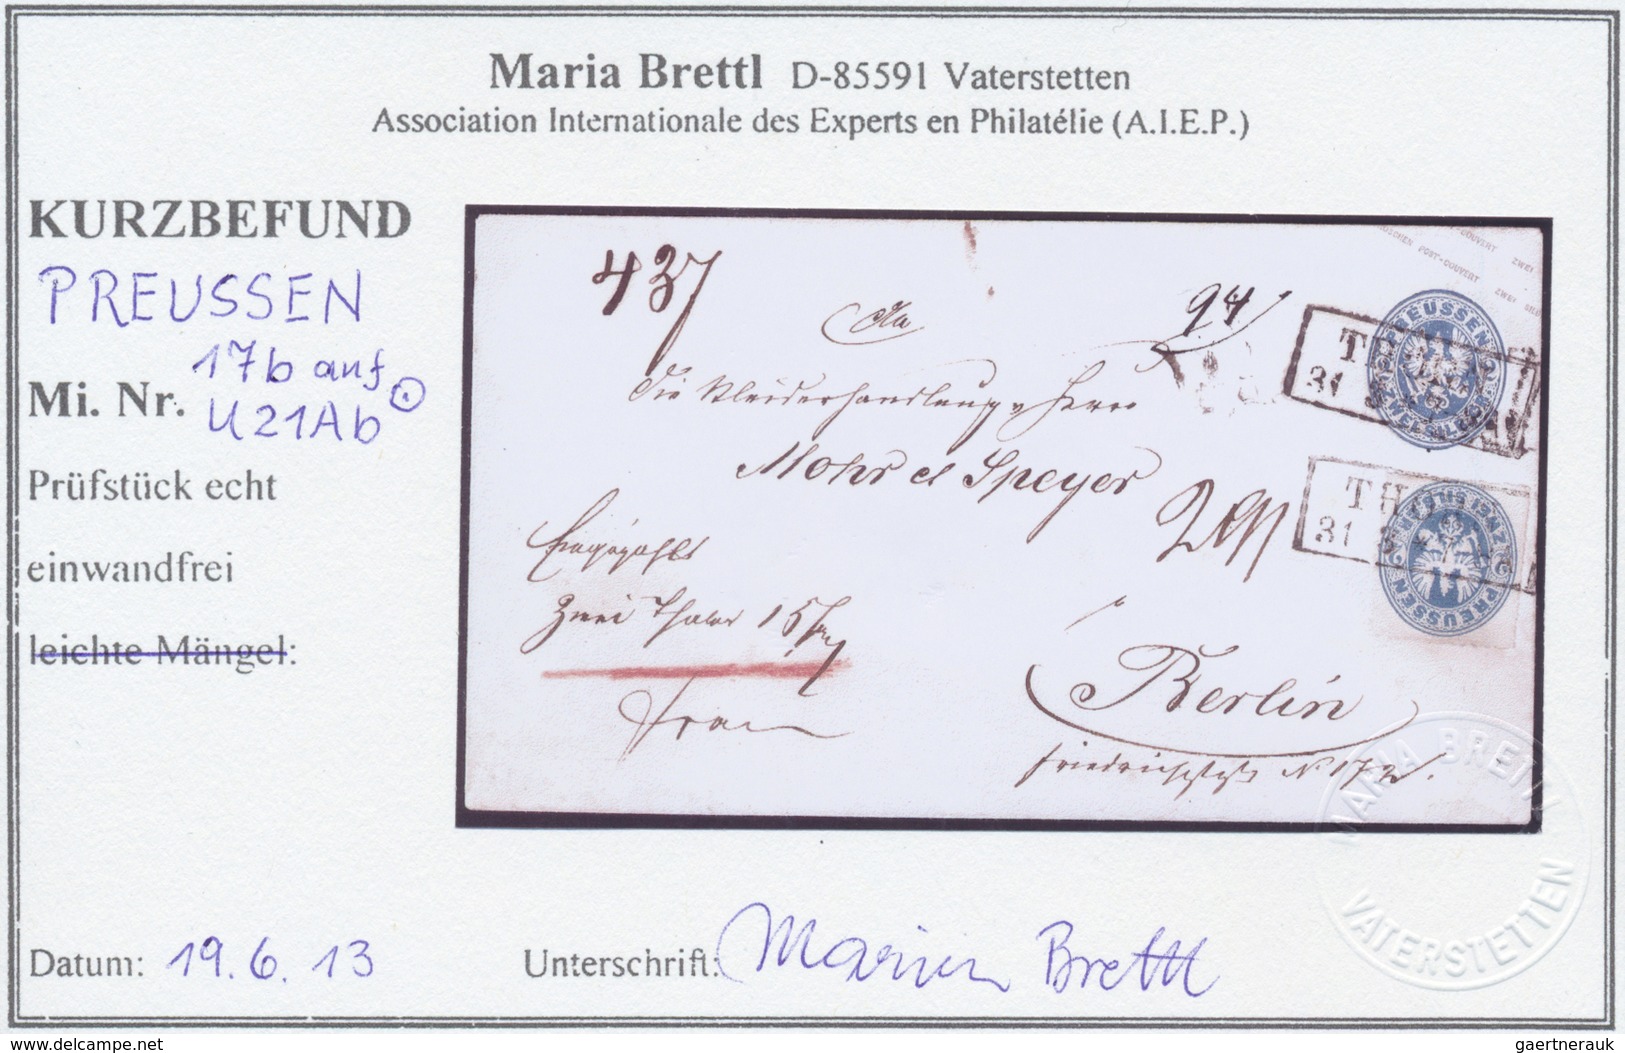 Maria Brettl D-85591 Vaterstetten
Association Internationale des Experts en Philatélie (A.I.E.P.)
KURZBEFUND
PREUSSEN
Mi. Nr. 17b auf
U21Ab
Prüfstück echt
einwandfrei
leichte Mängel:
437
94
POST-COUVERT ZWEI
PREUSSEN
31
die Kleiderhandlung v Herrn
Mohr et Speyer
THO
31
ZWEI SILB. GR. PREUSSEN
Eingezahlt
Zwei Thaler 15 Sgr
Berlin
Friedrichstr. N. 172.
MARIA BRETTL
VATERSTETTEN
Datum: 19.6.13 Unterschrift: Maria Brettl
www.delcampe.net
gaertnerauk